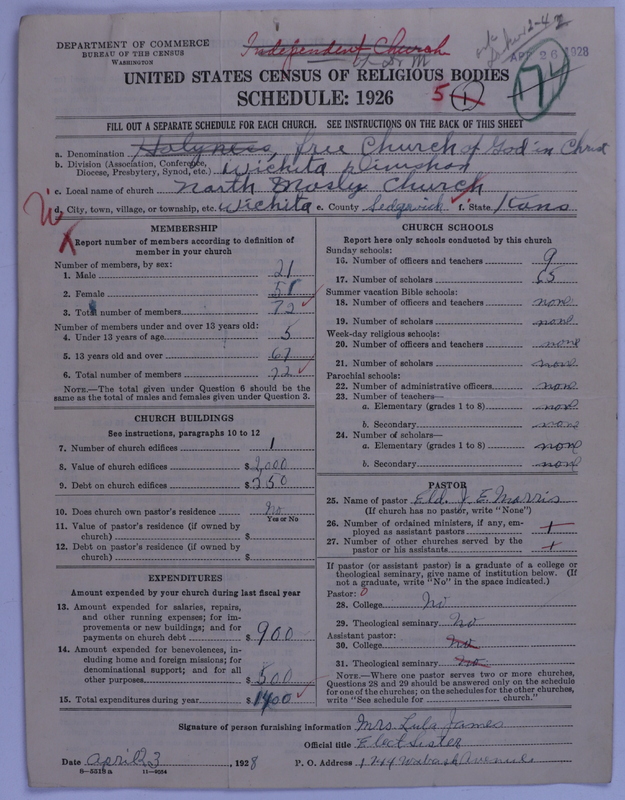 DEPARTMENT OF COMMERCE
BUREAU OF THE CENSUS
WASHINGTON
Independent Church
APR 26 1928
174
UNITED STATES CENSUS OF RELIGIOUS BODIES
SCHEDULE: 1926
5 1
FILL OUT A SEPARATE SCHEDULE FOR EACH CHURCH. SEE INSTRUCTIONS ON THE BACK OF THIS SHEET
a. Denomination Holyness, free Church of God in Christ
b. Division (Association, Conference, Diocese, Presbytery, Synod, etc.) Wichita Divishon
c. Local name of church North Mosly Church
d. City, town, village, or township, etc. Wichita e. County Sedgwick f. State Kans
MEMBERSHIP
Report number of members according to definition of member in your church
Number of members, by sex:
1. Male 21
2. Female 51
3. Total number of members 72
Number of members under and over 13 years old:
4. Under 13 years of age 5
5. 13 years old and over 67
6. Total number of members 72
NOTE.—The total given under Question 6 should be the same as the total of males and females given under Question 3.
CHURCH BUILDINGS
See instructions, paragraphs 10 to 12
7. Number of church edifices 1
8. Value of church edifices $2,000
9. Debt on church edifices $250
10. Does church own pastor's residence? No
Yes or No
11. Value of pastor's residence (if owned by church) $
12. Debt on pastor's residence (if owned by church) $
EXPENDITURES
Amount expended by church during last fiscal year
13. Amount expended for salaries, repairs, and other running expenses; for improvements or new buildings; and for payments on church debt $900
14. Amount expended for benevolences, including home and foreign missions; for denominational support; and for all other purposes $500
15. Total expenditures during year $1400
CHURCH SCHOOLS
Report here only schools conducted by this church
Sunday schools:
16. Number of officers and teachers 9
17. Number of scholars 65
Summer vacation Bible schools:
18. Number of officers and teachers none
19. Number of scholars none
Week-day religious schools:
20. Number of officers and teachers none
21. Number of scholars none
Parochial schools:
22. Number of administrative officers none
23. Number of teachers—
a. Elementary (grades 1 to 8) none
b. Secondary none
24. Number of scholars—
a. Elementary (grades 1 to 8) none
b. Secondary none
PASTOR
25. Name of pastor Eld. J. E. Morris
(If church has no pastor, write "None")
26. Number of ordained ministers, if any, employed as assistant pastors 1
27. Number of other churches served by the pastor or his assistants 1
If pastor (or assistant pastor) is a graduate of a college or theological seminary, give name of institution below. (If not a graduate, write "No" in the space indicated.)
Pastor: 0
28. College No
29. Theological seminary No
Assistant pastor:
30. College No
31. Theological seminary No
NOTE.—Where one pastor serves two or more churches, Questions 28 and 29 should be answered only on the schedule for one of the churches; on the schedules for the other churches, write "See schedule for church."
Signature of person furnishing information Mrs. Lula James
Official title Elect Sister
Date April 3, 1928 P. O. Address 1744 Wabash Avenue
8-5518a 11-9054